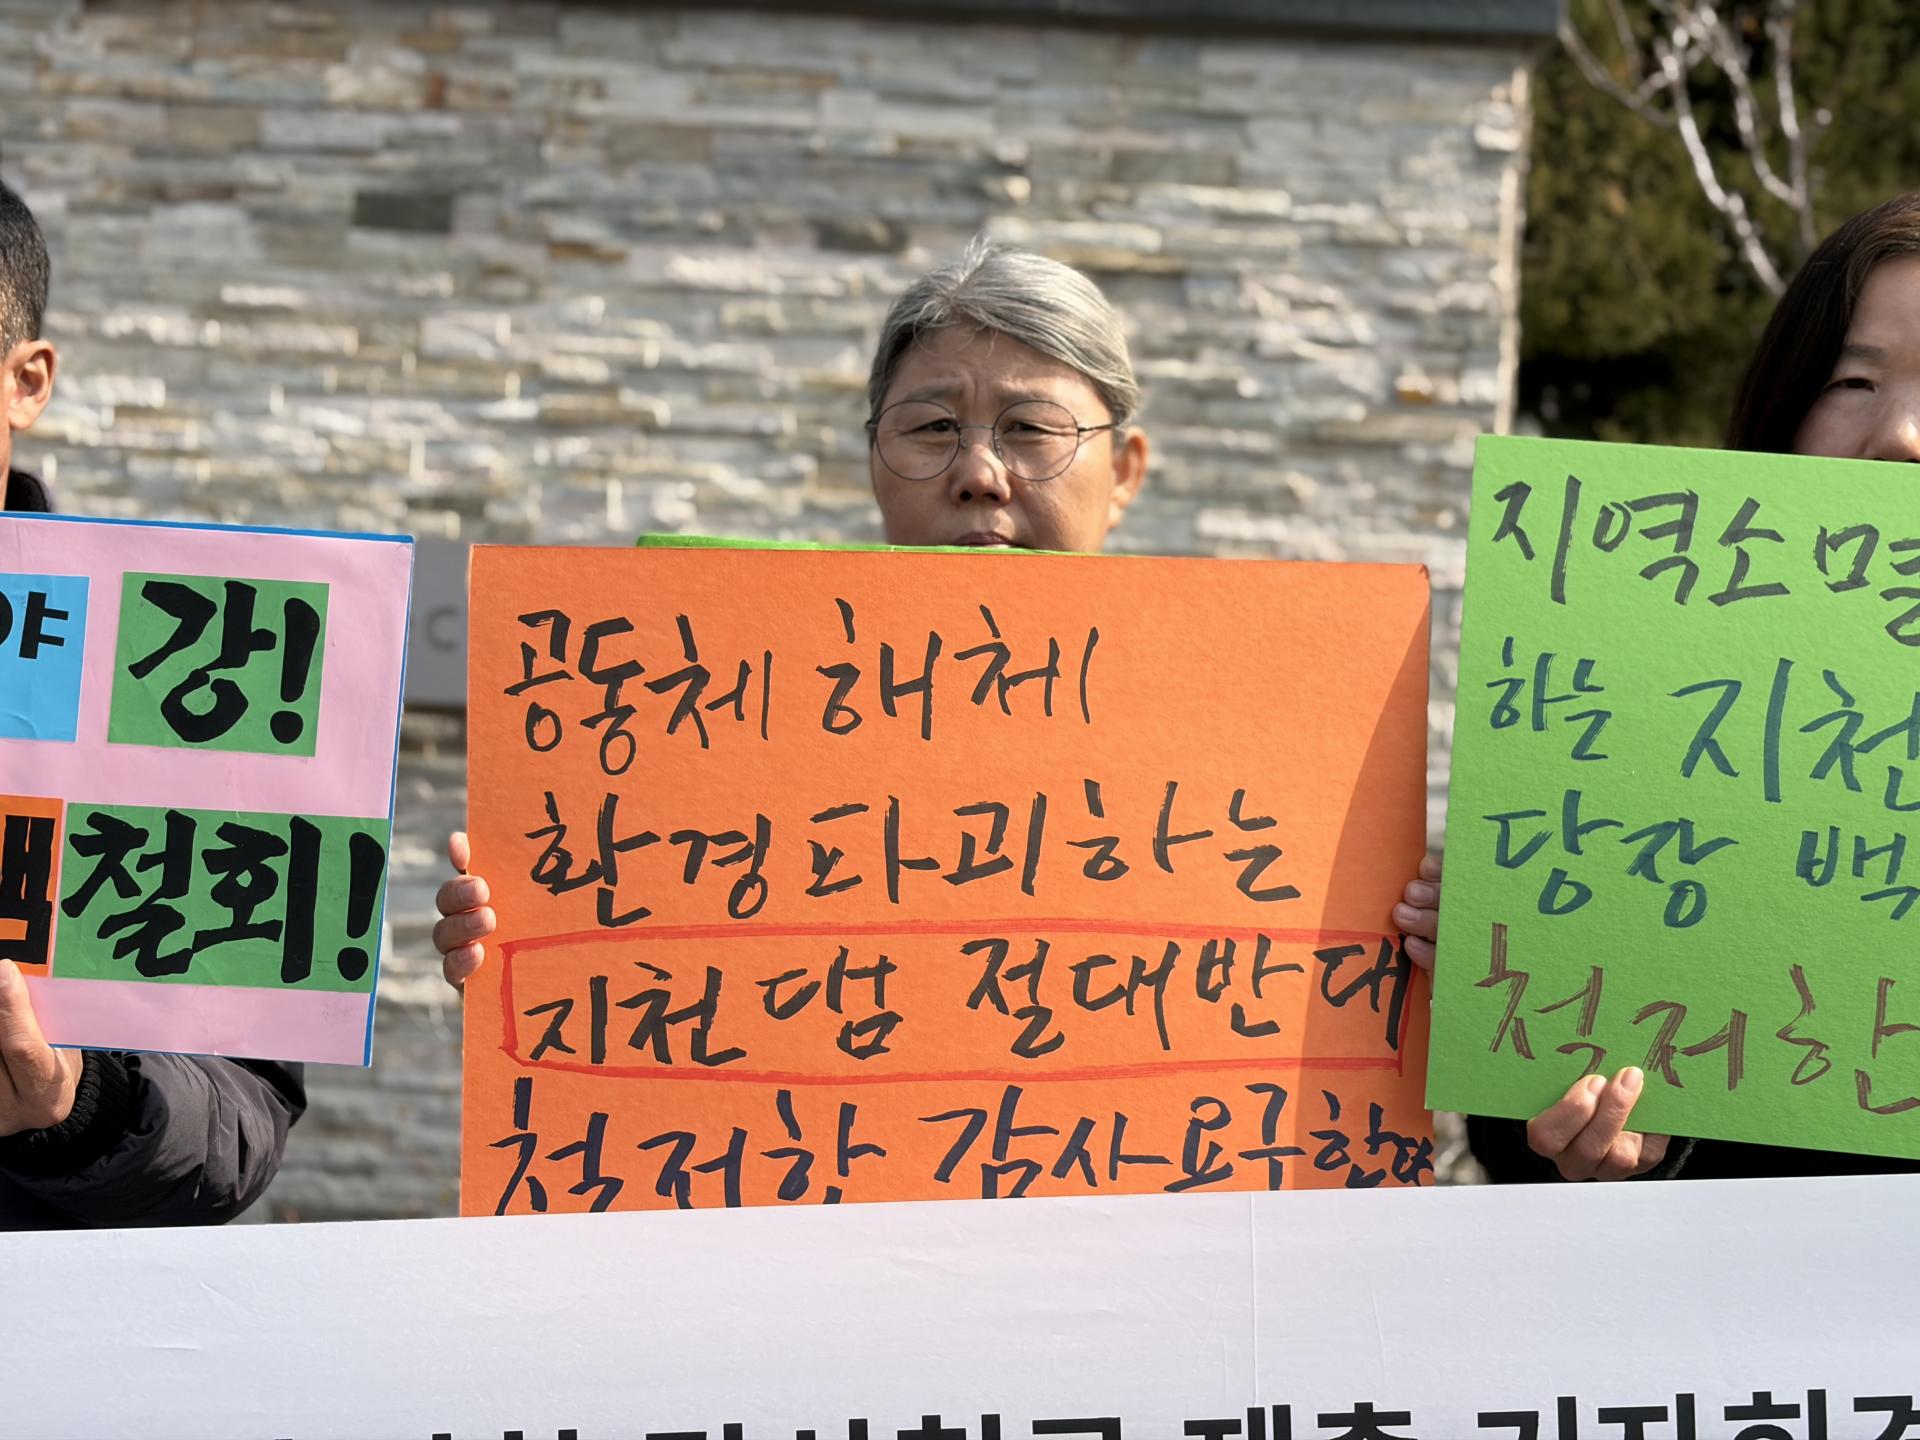 야 강!
댐 철회!
공동체 해체
환경파괴하는
지천댐 절대반대
척저한 감사요구한다
지역소멸
하는 지천
당장 백
척저한
제출 기자회견